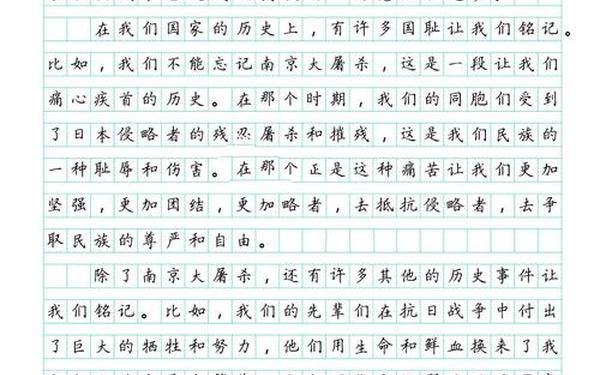 在我们国家的历史上，有许多国耻让我们铭记。
比如，我们不能忘记南京大屠杀，这是一段让我们
痛心疾首的历史。在那个时期，我们的同胞们受到
了日本侵略者的残忍屠杀和摧残，这是我们民族的
一种耻辱和伤害。在那个正是这种痛苦让我们更加
坚强，更加团结，更加略者，去抵抗侵略者，去争
取民族的尊严和自由。
除了南京大屠杀，还有许多其他的历史事件让
我们铭记。比如，我们的先辈们在抗日战争中付出
了巨大的牺牲和努力，他们用生命和鲜血换来了我